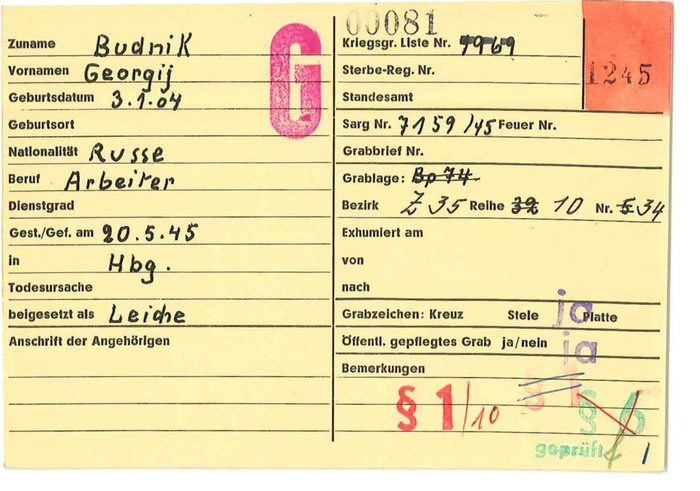 Zuname Budnik
Vornamen Georgij
Geburtsdatum 3.1.04
Geburtsort
Nationalität Russe
Beruf Arbeiter
Dienstgrad
Gest./Gef. am 20.5.45
in Hbg.
Todesursache
beigesetzt als Leiche
Anschrift der Angehörigen
G
00081
Kriegsgr. Liste Nr. 7969
1245
Sterbe-Reg. Nr.
Standesamt
Sarg Nr. 7159/45 Feuer Nr.
Grabbrief Nr.
Grablage: Bp 74
Bezirk Z 35 Reihe 32 10 Nr. 5 34
Exhumiert am
von
nach
Grabzeichen: Kreuz Stele Platte ja
Öffentl. gepflegtes Grab ja/nein ja
Bemerkungen
§ 1/10 § 1 § 6
geprüft 1